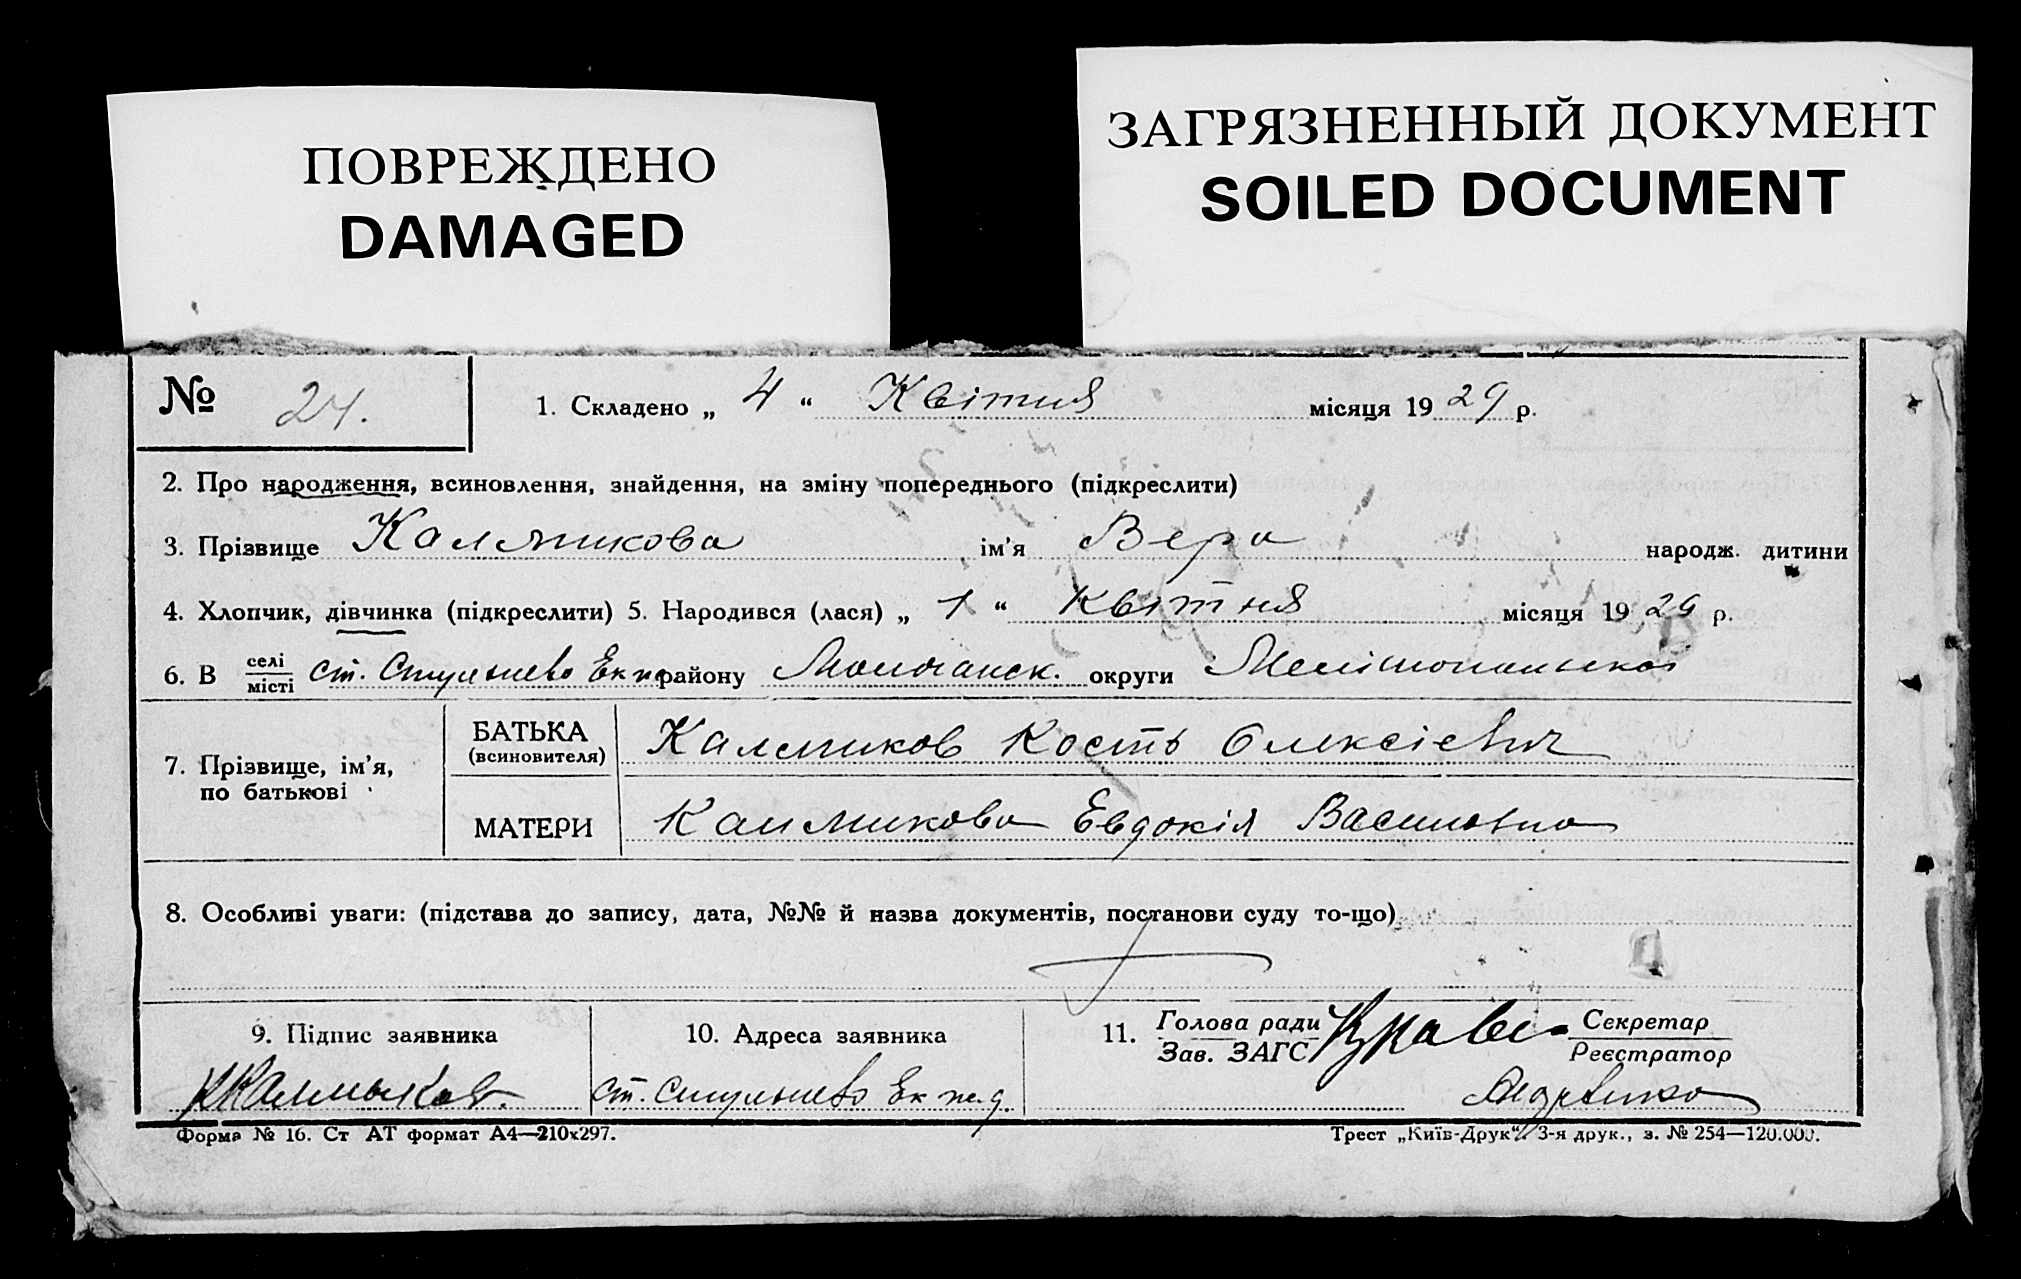 ПОВРЕЖДЕНО
DAMAGED
ЗАГРЯЗНЕННЫЙ ДОКУМЕНТ
SOILED DOCUMENT
№ 24.
1. Складено „ 4 “ Квітня місяця 1929 р.
2. Про народження, всиновлення, знайдення, на зміну попереднього (підкреслити)
3. Прізвище Калмикова ім’я Вера народж. дитини
4. Хлопчик, дівчинка (підкреслити) 5. Народився (лася) „ 1 “ Квітня місяця 1929 р.
6. В селі місті ст. Стульнево району Молочанск. округи
7. Прізвище, ім’я, по батькові
БАТЬКА (всиновителя) Калмиков Кость Олексієвич
МАТЕРИ Калмикова Евдокія
8. Особливі уваги: (підстава до запису, дата, №№ й назва документів, постанови суду то-що)
9. Підпис заявника
ККалмыков.
10. Адреса заявника
ст. Стульнево
11. Голова ради Зав. ЗАГС
Секретар Реєстратор
Форма № 16. Ст АТ формат А4—210х297.
Трест „Київ-Друк“. 3-я друк., з. № 254—120.000.